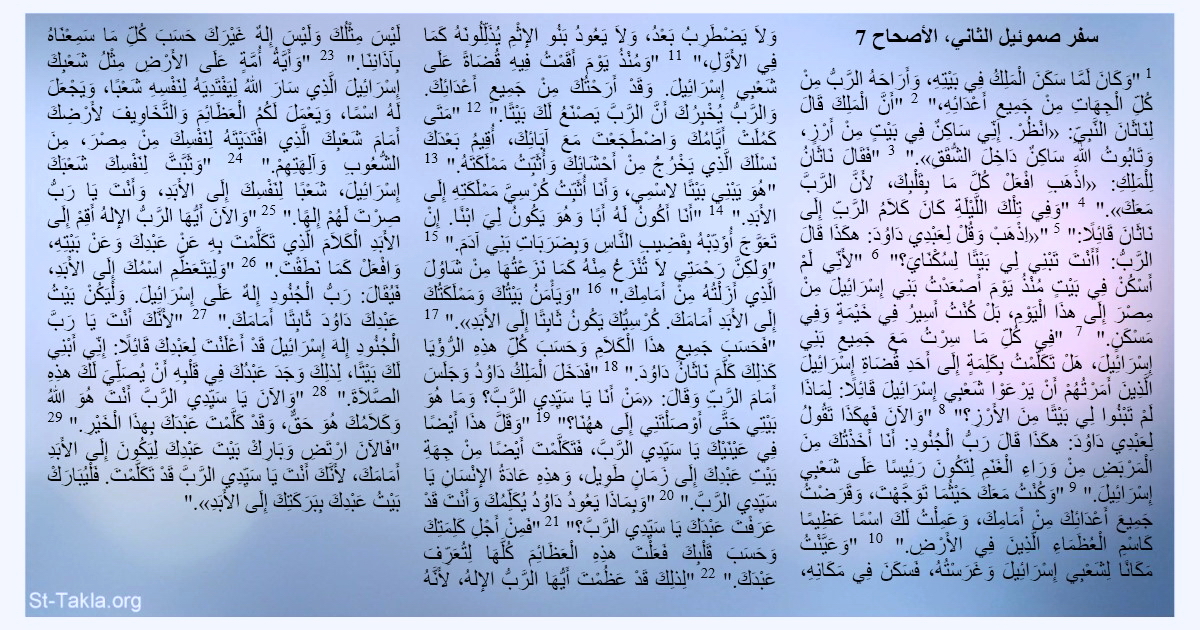 سفر صموئيل الثاني، الأصحاح 7
1 "وَكَانَ لَمَّا سَكَنَ الْمَلِكُ فِي بَيْتِهِ، وَأَرَاحَهُ الرَّبُّ مِنْ
كُلِّ الْجِهَاتِ مِنْ جَمِيعِ أَعْدَائِهِ،" 2 "أَنَّ الْمَلِكَ قَالَ
لِنَاثَانَ النَّبِيِّ: «انْظُرْ. إِنِّي سَاكِنٌ فِي بَيْتٍ مِنْ أَرْزٍ،
وَتَابُوتُ اللهِ سَاكِنٌ دَاخِلَ الشُّقَقِ»." 3 "فَقَالَ نَاثَانُ
لِلْمَلِكِ: «اذْهَبِ افْعَلْ كُلَّ مَا بِقَلْبِكَ، لأَنَّ الرَّبَّ
مَعَكَ»." 4 "وَفِي تِلْكَ اللَّيْلَةِ كَانَ كَلاَمُ الرَّبِّ إِلَى
نَاثَانَ قَائِلًا:" 5 "«اِذْهَبْ وَقُلْ لِعَبْدِي دَاوُدَ: هكَذَا قَالَ
الرَّبُّ: أَأَنْتَ تَبْنِي لِي بَيْتًا لِسُكْنَايَ؟" 6 "لأَنِّي لَمْ
أَسْكُنْ فِي بَيْتٍ مُنْذُ يَوْمَ أَصْعَدْتُ بَنِي إِسْرَائِيلَ مِنْ
مِصْرَ إِلَى هذَا الْيَوْمِ، بَلْ كُنْتُ أَسِيرُ فِي خَيْمَةٍ وَفِي
مَسْكَنٍ." 7 "فِي كُلِّ مَا سِرْتُ مَعَ جَمِيعِ بَنِي
إِسْرَائِيلَ، هَلْ تَكَلَّمْتُ بِكَلِمَةٍ إِلَى أَحَدِ قُضَاةِ إِسْرَائِيلَ
الَّذِينَ أَمَرْتُهُمْ أَنْ يَرْعَوْا شَعْبِي إِسْرَائِيلَ قَائِلًا: لِمَاذَا
لَمْ تَبْنُوا لِي بَيْتًا مِنَ الأَرْزِ؟" 8 "وَالآنَ فَهكَذَا تَقُولُ
لِعَبْدِي دَاوُدَ: هكَذَا قَالَ رَبُّ الْجُنُودِ: أَنَا أَخَذْتُكَ مِنَ
الْمَرْبَضِ مِنْ وَرَاءِ الْغَنَمِ لِتَكُونَ رَئِيسًا عَلَى شَعْبِي
إِسْرَائِيلَ." 9 "وَكُنْتُ مَعَكَ حَيْثُمَا تَوَجَّهْتَ، وَقَرَضْتُ
جَمِيعَ أَعْدَائِكَ مِنْ أَمَامِكَ، وَعَمِلْتُ لَكَ اسْمًا عَظِيمًا
كَاسْمِ الْعُظَمَاءِ الَّذِينَ فِي الأَرْضِ." 10 "وَعَيَّنْتُ
مَكَانًا لِشَعْبِي إِسْرَائِيلَ وَغَرَسْتُهُ، فَسَكَنَ فِي مَكَانِهِ،
وَلاَ يَضْطَرِبُ بَعْدُ، وَلاَ يَعُودُ بَنُو الإِثْمِ يُذَلِّلُونَهُ كَمَا
فِي الأَوَّلِ،" 11 "وَمُنْذُ يَوْمَ أَقَمْتُ فِيهِ قُضَاةً عَلَى
شَعْبِي إِسْرَائِيلَ. وَقَدْ أَرَحْتُكَ مِنْ جَمِيعِ أَعْدَائِكَ.
وَالرَّبُّ يُخْبِرُكَ أَنَّ الرَّبَّ يَصْنَعُ لَكَ بَيْتًا." 12 "مَتَى
كَمُلَتْ أَيَّامُكَ وَاضْطَجَعْتَ مَعَ آبَائِكَ، أُقِيمُ بَعْدَكَ
نَسْلَكَ الَّذِي يَخْرُجُ مِنْ أَحْشَائِكَ وَأُثَبِّتُ مَمْلَكَتَهُ." 13
"هُوَ يَبْنِي بَيْتًا لاسْمِي، وَأَنَا أُثَبِّتُ كُرْسِيَّ مَمْلَكَتِهِ إِلَى
الأَبَدِ." 14 "أَنَا أَكُونُ لَهُ أَبًا وَهُوَ يَكُونُ لِيَ ابْنًا. إِنْ
تَعَوَّجَ أُؤَدِّبْهُ بِقَضِيبِ النَّاسِ وَبِضَرَبَاتِ بَنِي آدَمَ." 15
"وَلكِنَّ رَحْمَتِي لاَ تُنْزَعُ مِنْهُ كَمَا نَزَعْتُهَا مِنْ شَاوُلَ
الَّذِي أَزَلْتُهُ مِنْ أَمَامِكَ." 16 "وَيَأْمَنُ بَيْتُكَ وَمَمْلَكَتُكَ
إِلَى الأَبَدِ أَمَامَكَ. كُرْسِيُّكَ يَكُونُ ثَابِتًا إِلَى الأَبَدِ»." 17
"فَحَسَبَ جَمِيعِ هذَا الْكَلاَمِ وَحَسَبَ كُلِّ هذِهِ الرُّؤْيَا
كَذلِكَ كَلَّمَ نَاثَانُ دَاوُدَ." 18 "فَدَخَلَ الْمَلِكُ دَاوُدُ وَجَلَسَ
أَمَامَ الرَّبِّ وَقَالَ: «مَنْ أَنَا يَا سَيِّدِي الرَّبَّ؟ وَمَا هُوَ
بَيْتِي حَتَّى أَوْصَلْتَنِي إِلَى ههُنَا؟" 19 "وَقَلَّ هذَا أَيْضًا
فِي عَيْنَيْكَ يَا سَيِّدِي الرَّبَّ، فَتَكَلَّمْتَ أَيْضًا مِنْ جِهَةِ
بَيْتِ عَبْدِكَ إِلَى زَمَانٍ طَوِيل، وَهذِهِ عَادَةُ الإِنْسَانِ يَا
سَيِّدِي الرَّبَّ." 20 "وَبِمَاذَا يَعُودُ دَاوُدُ يُكَلِّمُكَ وَأَنْتَ قَدْ
عَرَفْتَ عَبْدَكَ يَا سَيِّدِي الرَّبَّ؟" 21 "فَمِنْ أَجْلِ كَلِمَتِكَ
وَحَسَبَ قَلْبِكَ فَعَلْتَ هذِهِ الْعَظَائِمَ كُلَّهَا لِتُعَرِّفَ
عَبْدَكَ." 22 "لِذلِكَ قَدْ عَظُمْتَ أَيُّهَا الرَّبُّ الإِلهُ، لأَنَّهُ
لَيْسَ مِثْلُكَ وَلَيْسَ إِلهٌ غَيْرَكَ حَسَبَ كُلِّ مَا سَمِعْنَاهُ
بِآذَانِنَا." 23 "وَأَيَّةُ أُمَّةٍ عَلَى الأَرْضِ مِثْلُ شَعْبِكَ
إِسْرَائِيلَ الَّذِي سَارَ اللهُ لِيَفْتَدِيَهُ لِنَفْسِهِ شَعْبًا، وَيَجْعَلَ
لَهُ اسْمًا، وَيَعْمَلَ لَكُمُ الْعَظَائِمَ وَالتَّخَاوِيفَ لأَرْضِكَ
أَمَامَ شَعْبِكَ الَّذِي افْتَدَيْتَهُ لِنَفْسِكَ مِنْ مِصْرَ، مِنَ
الشُّعُوبِ وَآلِهَتِهِمْ." 24 "وَثَبَّتَّ لِنَفْسِكَ شَعْبَكَ
إِسْرَائِيلَ، شَعْبًا لِنَفْسِكَ إِلَى الأَبَدِ، وَأَنْتَ يَا رَبُّ
صِرْتَ لَهُمْ إِلهًا." 25 "وَالآنَ أَيُّهَا الرَّبُّ الإِلهُ أَقِمْ إِلَى
الأَبَدِ الْكَلاَمَ الَّذِي تَكَلَّمْتَ بِهِ عَنْ عَبْدِكَ وَعَنْ بَيْتِهِ،
وَافْعَلْ كَمَا نَطَقْتَ." 26 "وَلِيَتَعَظَّمِ اسْمُكَ إِلَى الأَبَدِ،
فَيُقَالَ: رَبُّ الْجُنُودِ إِلهٌ عَلَى إِسْرَائِيلَ. وَلْيَكُنْ بَيْتُ
عَبْدِكَ دَاوُدَ ثَابِتًا أَمَامَكَ." 27 "لأَنَّكَ أَنْتَ يَا رَبَّ
الْجُنُودِ إِلهَ إِسْرَائِيلَ قَدْ أَعْلَنْتَ لِعَبْدِكَ قَائِلًا: إِنِّي أَبْنِي
لَكَ بَيْتًا، لِذلِكَ وَجَدَ عَبْدُكَ فِي قَلْبِهِ أَنْ يُصَلِّيَ لَكَ هذِهِ
الصَّلاَةَ." 28 "وَالآنَ يَا سَيِّدِي الرَّبَّ أَنْتَ هُوَ اللهُ
وَكَلاَمُكَ هُوَ حَقٌّ، وَقَدْ كَلَّمْتَ عَبْدَكَ بِهذَا الْخَيْرِ." 29
"فَالآنَ ارْتَضِ وَبَارِكْ بَيْتَ عَبْدِكَ لِيَكُونَ إِلَى الأَبَدِ
أَمَامَكَ، لأَنَّكَ أَنْتَ يَا سَيِّدِي الرَّبَّ قَدْ تَكَلَّمْتَ. فَلْيُبَارَكْ
بَيْتُ عَبْدِكَ بِبَرَكَتِكَ إِلَى الأَبَدِ»."
St-Takla.org